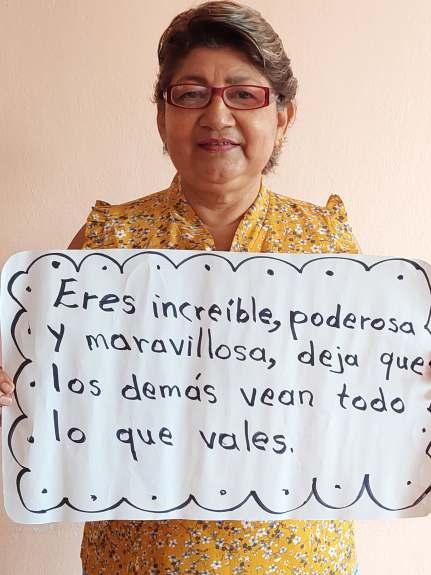 Eres increíble, poderosa
y maravillosa, deja que
los demás vean todo
lo que vales.